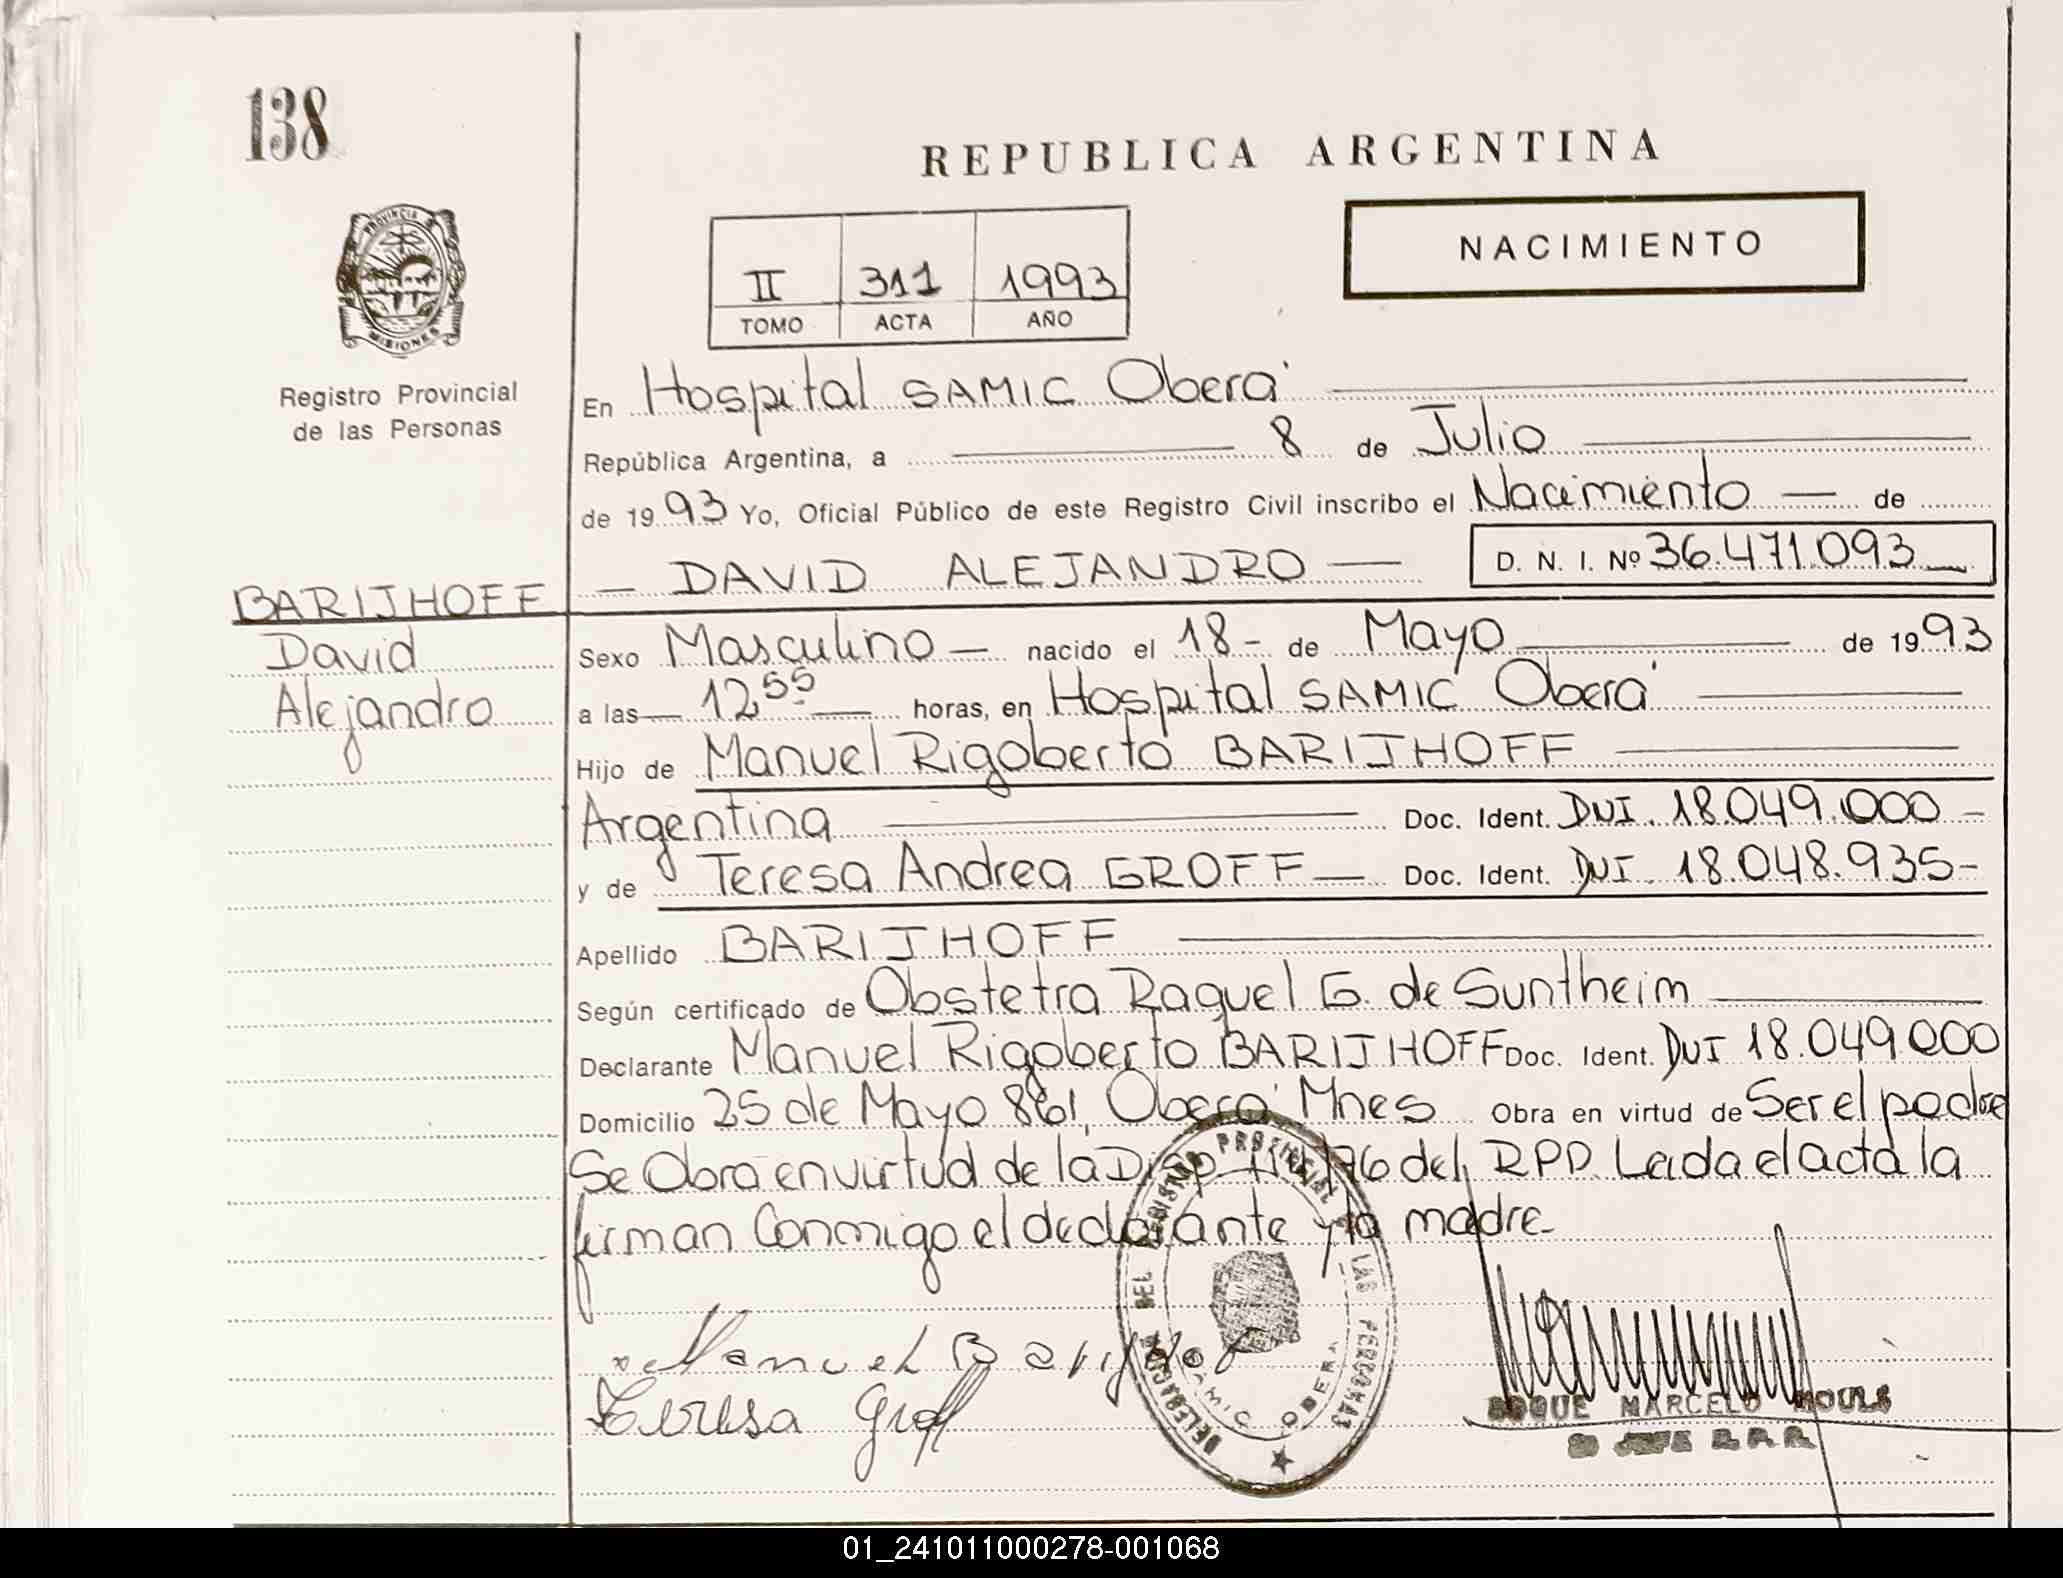 138
REPUBLICA ARGENTINA
NACIMIENTO
II 311 1993
TOMO ACTA AÑO
PROVINCIA
MISIONES
Registro Provincial
de las Personas
En Hospital SAMIC Oberá
República Argentina, a 8 de Julio
de 1993 Yo, Oficial Público de este Registro Civil inscribo el Nacimiento — de
— DAVID ALEJANDRO — D. N. I. Nº 36.471.093
BARIJHOFF
David
Alejandro
Sexo Masculino — nacido el 18 - de Mayo de 1993
a las — 12,55 — horas, en Hospital SAMIC Oberá
Hijo de Manuel Rigoberto BARIJHOFF
Argentina Doc. Ident. DNI. 18.049.000 -
y de Teresa Andrea GROFF — Doc. Ident. DNI. 18.048.935-
Apellido BARIJHOFF
Según certificado de Obstetra Raquel G. de Suntheim
Declarante Manuel Rigoberto BARIJHOFF Doc. Ident. DNI 18.049.000
Domicilio 25 de Mayo 861, Oberá Mnes Obra en virtud de Ser el padre
Se Obra en virtud de la Disp 176 del RPP. Leida el acta la
firman Conmigo el declarante y la madre
Manuel Barijhof
Teresa Groff
DELEGACION DEL REGISTRO PROVINCIAL DE LAS PERSONAS
SAMIC OBERA
ROQUE MARCELO
01_241011000278-001068